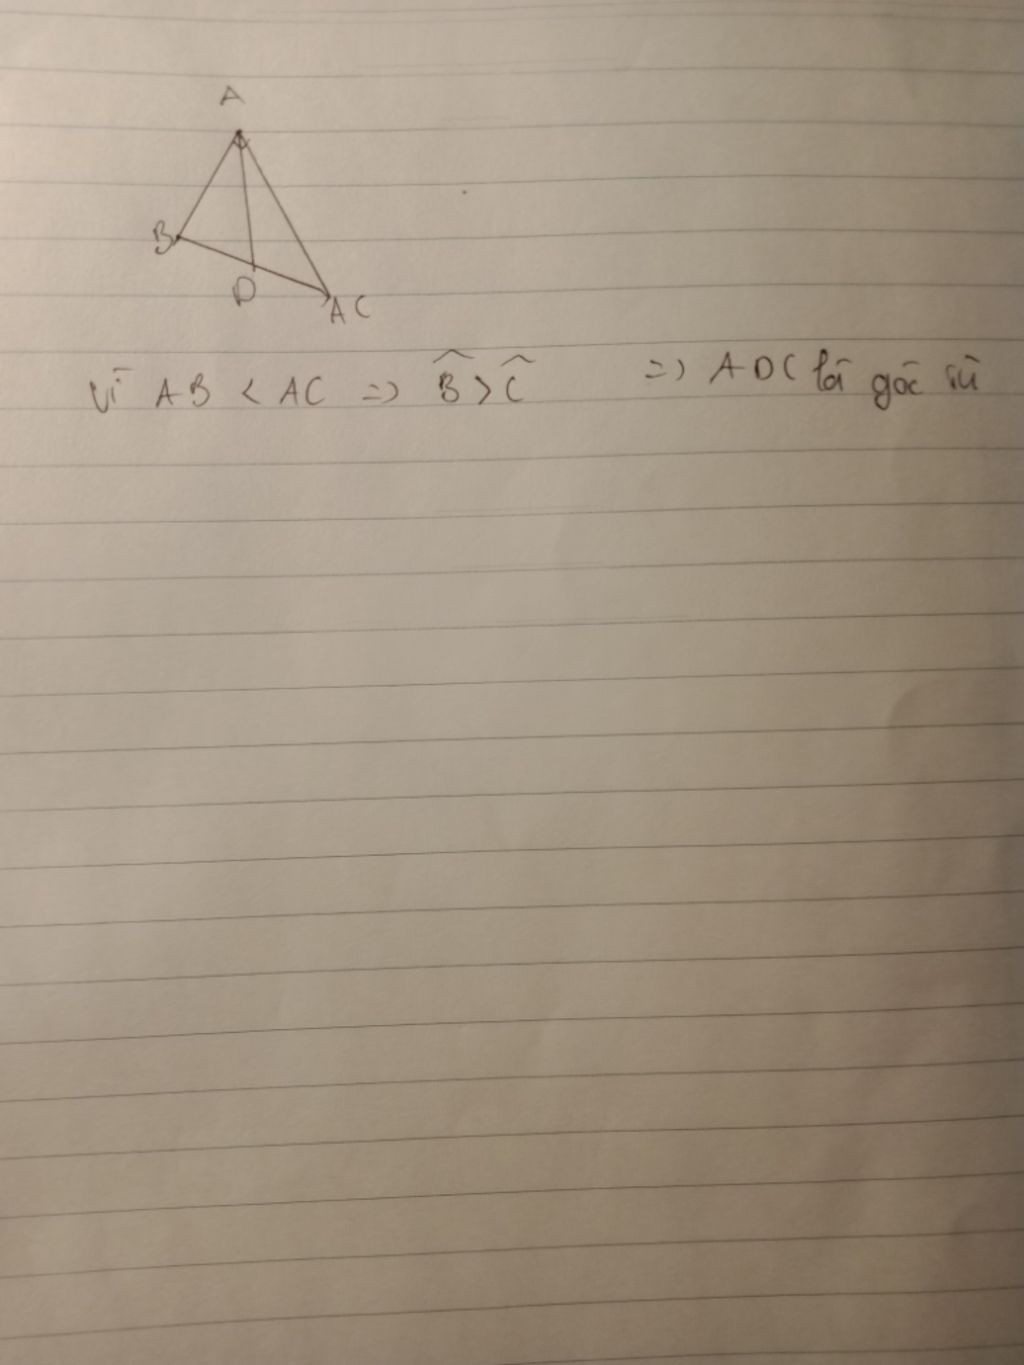 A
B
D
A C
Vì AB < AC => B̂ > Ĉ => ADC là góc tù